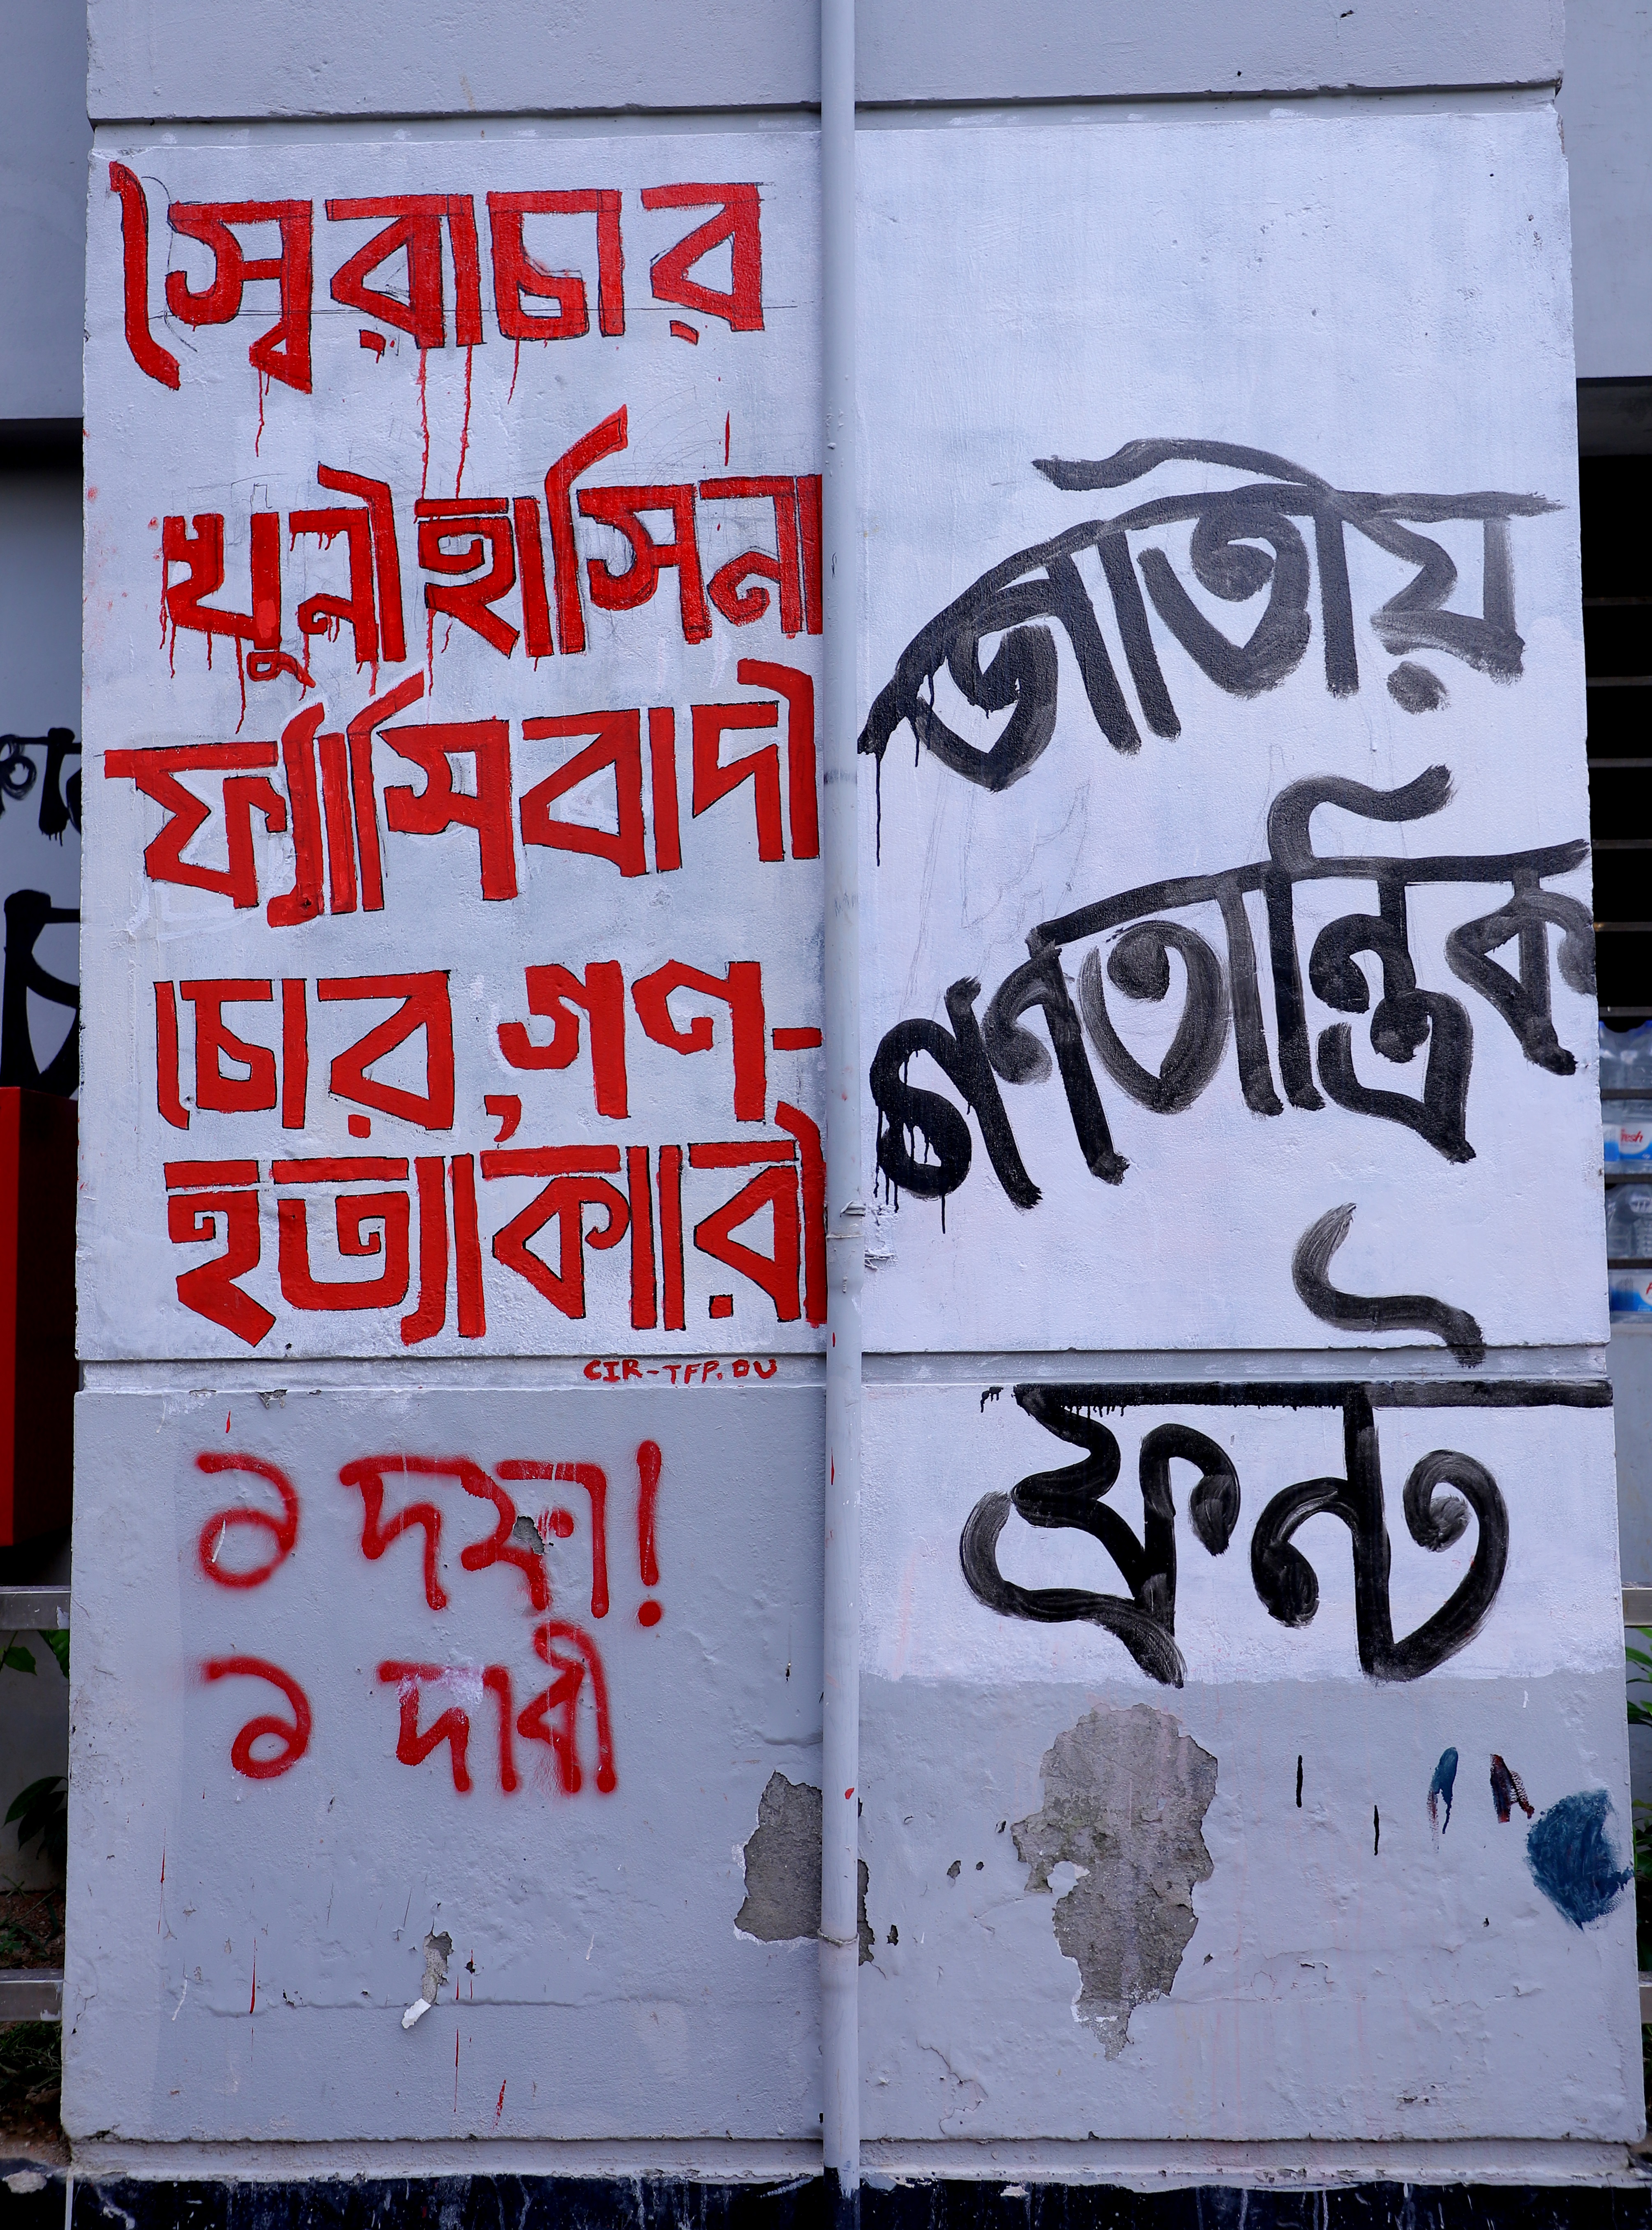 স্বৈরাচার
খুনী হাসিনা
ফ্যাসিবাদী
চোর, গণ-
হত্যাকারী
CIR-TFP.DU
১ দফা!
১ দাবী
জাতীয়
গণতান্ত্রিক
ফ্রন্ট